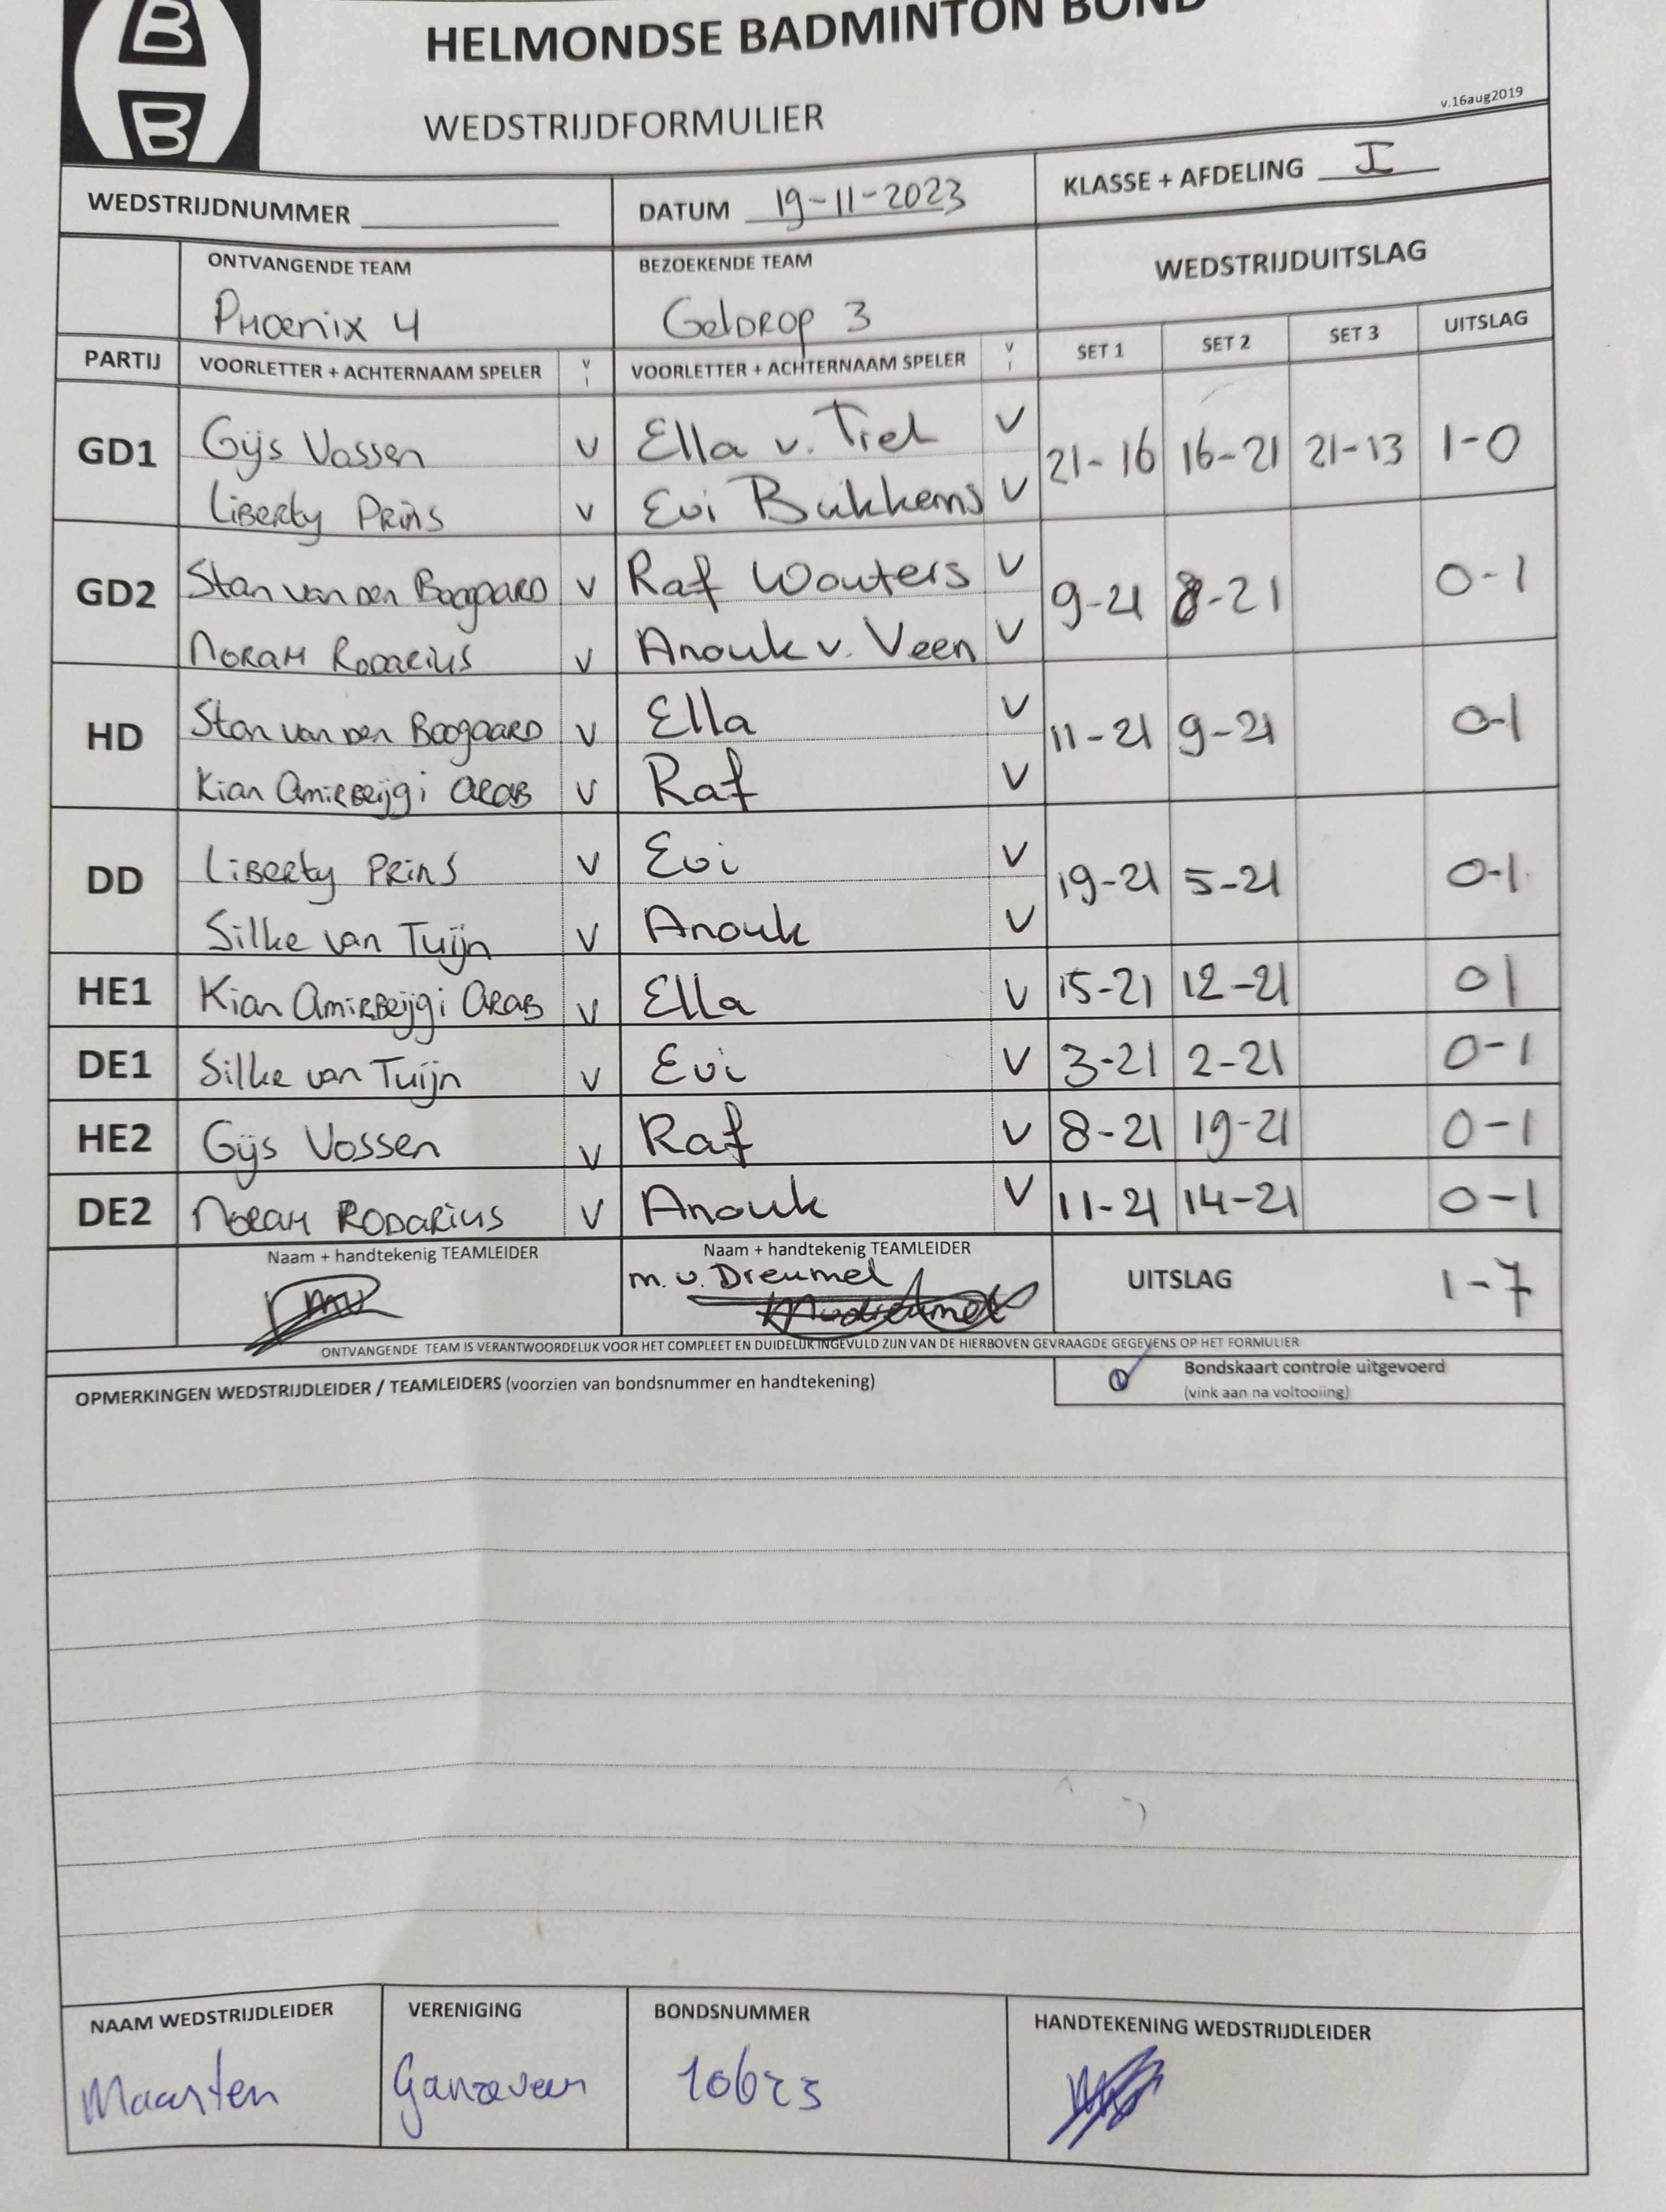 B
B
HELMONDSE BADMINTON BOND
WEDSTRIJDFORMULIER
v.16aug2019
WEDSTRIJDNUMMER
DATUM 19-11-2023
KLASSE + AFDELING I
ONTVANGENDE TEAM
BEZOEKENDE TEAM
WEDSTRIJDUITSLAG
Phoenix 4
Geldrop 3
PARTIJ VOORLETTER + ACHTERNAAM SPELER V VOORLETTER + ACHTERNAAM SPELER V SET 1 SET 2 SET 3 UITSLAG
GD1 Gijs Vossen V Ella v. Tiel V 21-16 16-21 21-13 1-0
Liberty Prins V Evi Bukkems V
GD2 Stan van den Boogaard V Raf Wouters V 9-21 8-21 0-1
Norah Rodarius V Anouk v. Veen V
HD Stan van den Boogaard V Ella V 11-21 9-21 0-1
Kian Amirbeijgi Arab V Raf V
DD Liberty Prins V Evi V 19-21 5-21 0-1
Silke van Tuijn V Anouk V
HE1 Kian Amirbeijgi Arab V Ella V 15-21 12-21 0 1
DE1 Silke van Tuijn V Evi V 3-21 2-21 0-1
HE2 Gijs Vossen V Raf V 8-21 19-21 0-1
DE2 Norah Rodarius V Anouk V 11-21 14-21 0-1
Naam + handtekenig TEAMLEIDER
Naam + handtekenig TEAMLEIDER
m. v. Dreumel
UITSLAG 1-7
ONTVANGENDE TEAM IS VERANTWOORDELIJK VOOR HET COMPLEET EN DUIDELIJK INGEVULD ZIJN VAN DE HIERBOVEN GEVRAAGDE GEGEVENS OP HET FORMULIER
OPMERKINGEN WEDSTRIJDLEIDER / TEAMLEIDERS (voorzien van bondsnummer en handtekening)
Bondskaart controle uitgevoerd
(vink aan na voltooiing)
NAAM WEDSTRIJDLEIDER VERENIGING BONDSNUMMER HANDTEKENING WEDSTRIJDLEIDER
Maarten